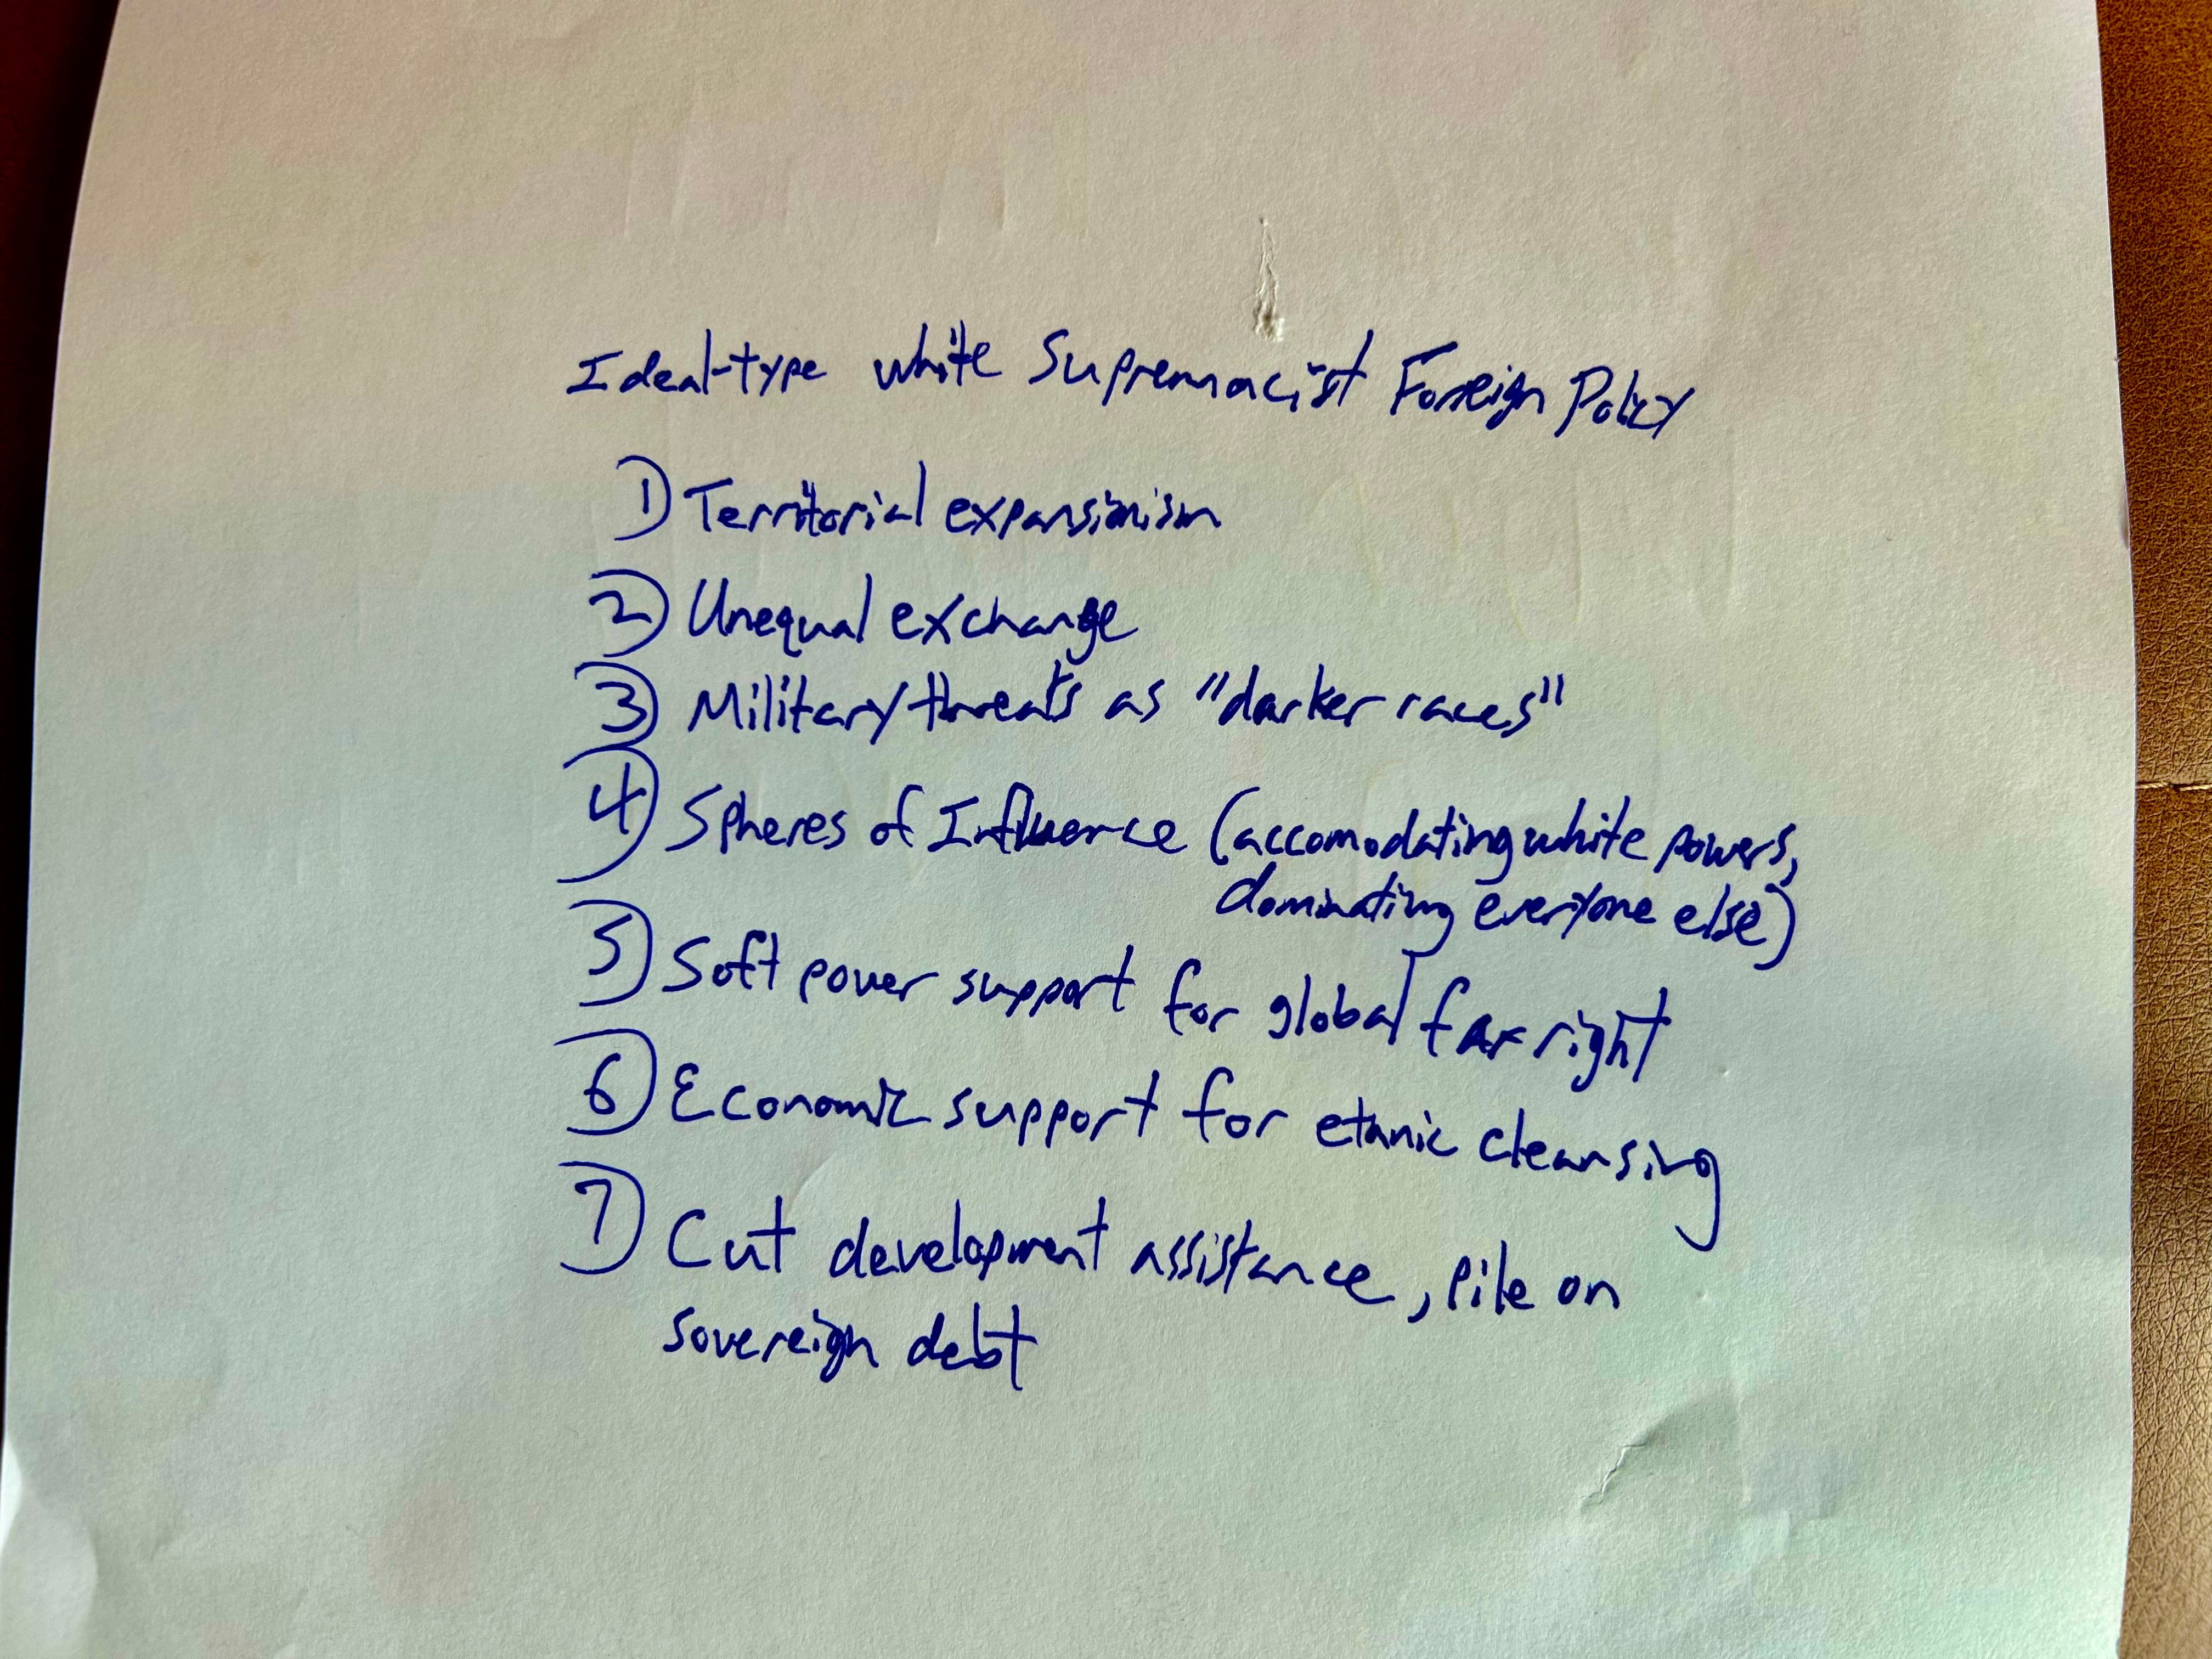 Ideal-type white Supremacist Foreign Policy
① Territorial expansionism
② Unequal exchange
③ Military threats as "darker races"
④ Spheres of Influence (accomodating white powers,
dominating everyone else)
⑤ Soft power support for global far right
⑥ Economic support for etnnic cleansing
⑦ Cut development assistance, pile on
sovereign debt